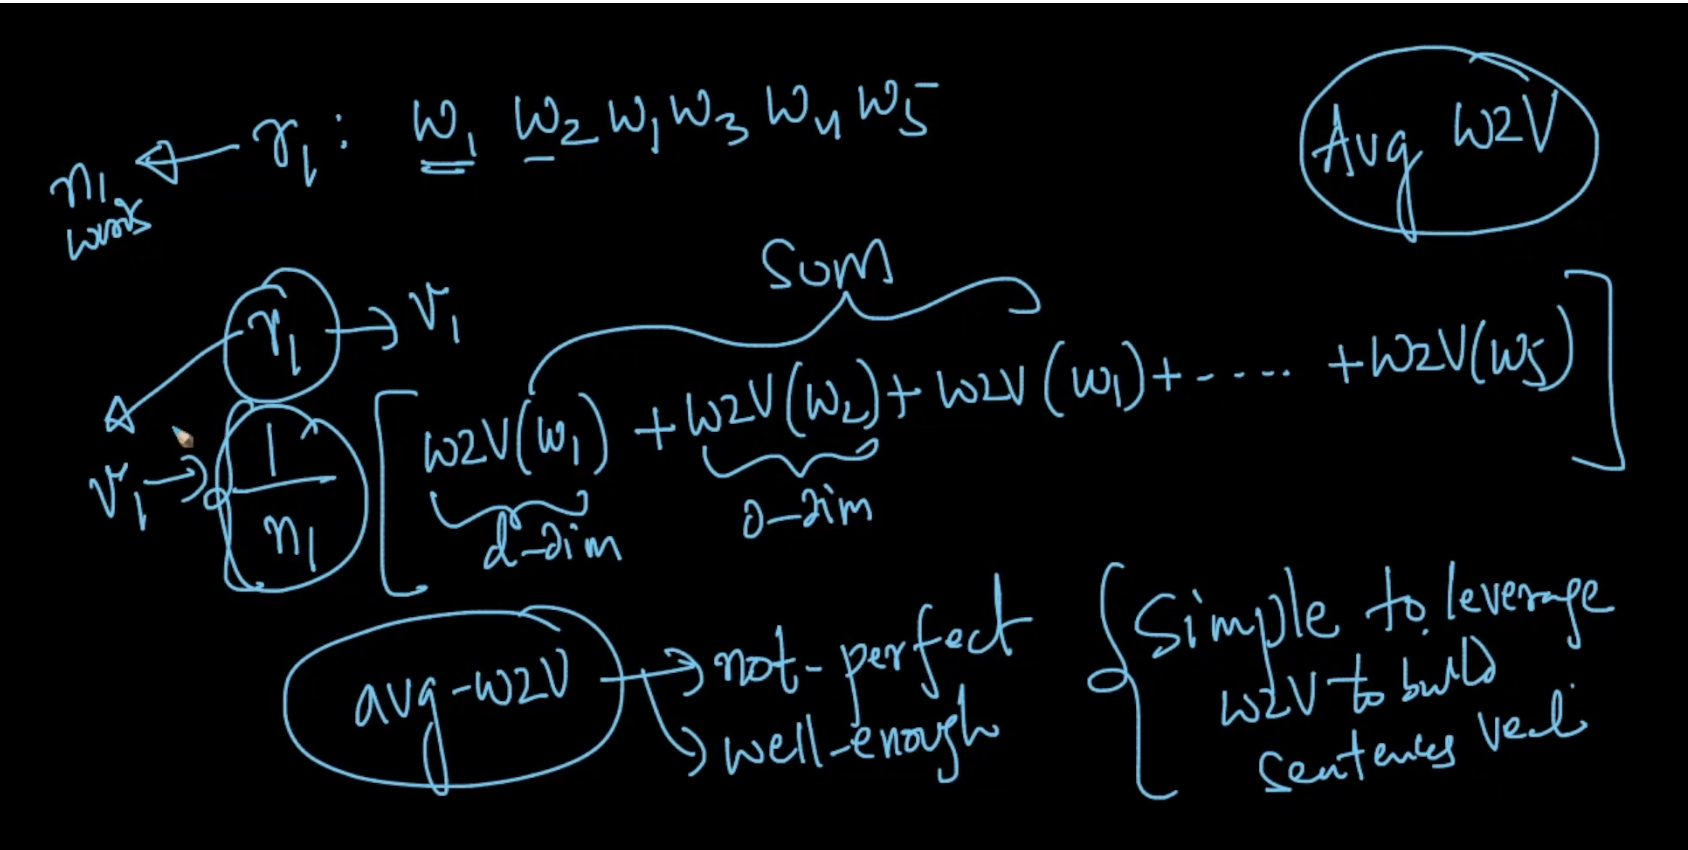 r1 : w1 w2 w1 w3 w4 w5
n1
words
Avg W2V
Sum
r1 → v1
v1 → 1/n1 [ w2v(w1) + w2v(w2) + w2v(w1) + - - - .. + w2v(w5) ]
d-dim
d-dim
avg-w2v → not-perfect
→ well-enough
Simple to leverage
w2v to build
sentences